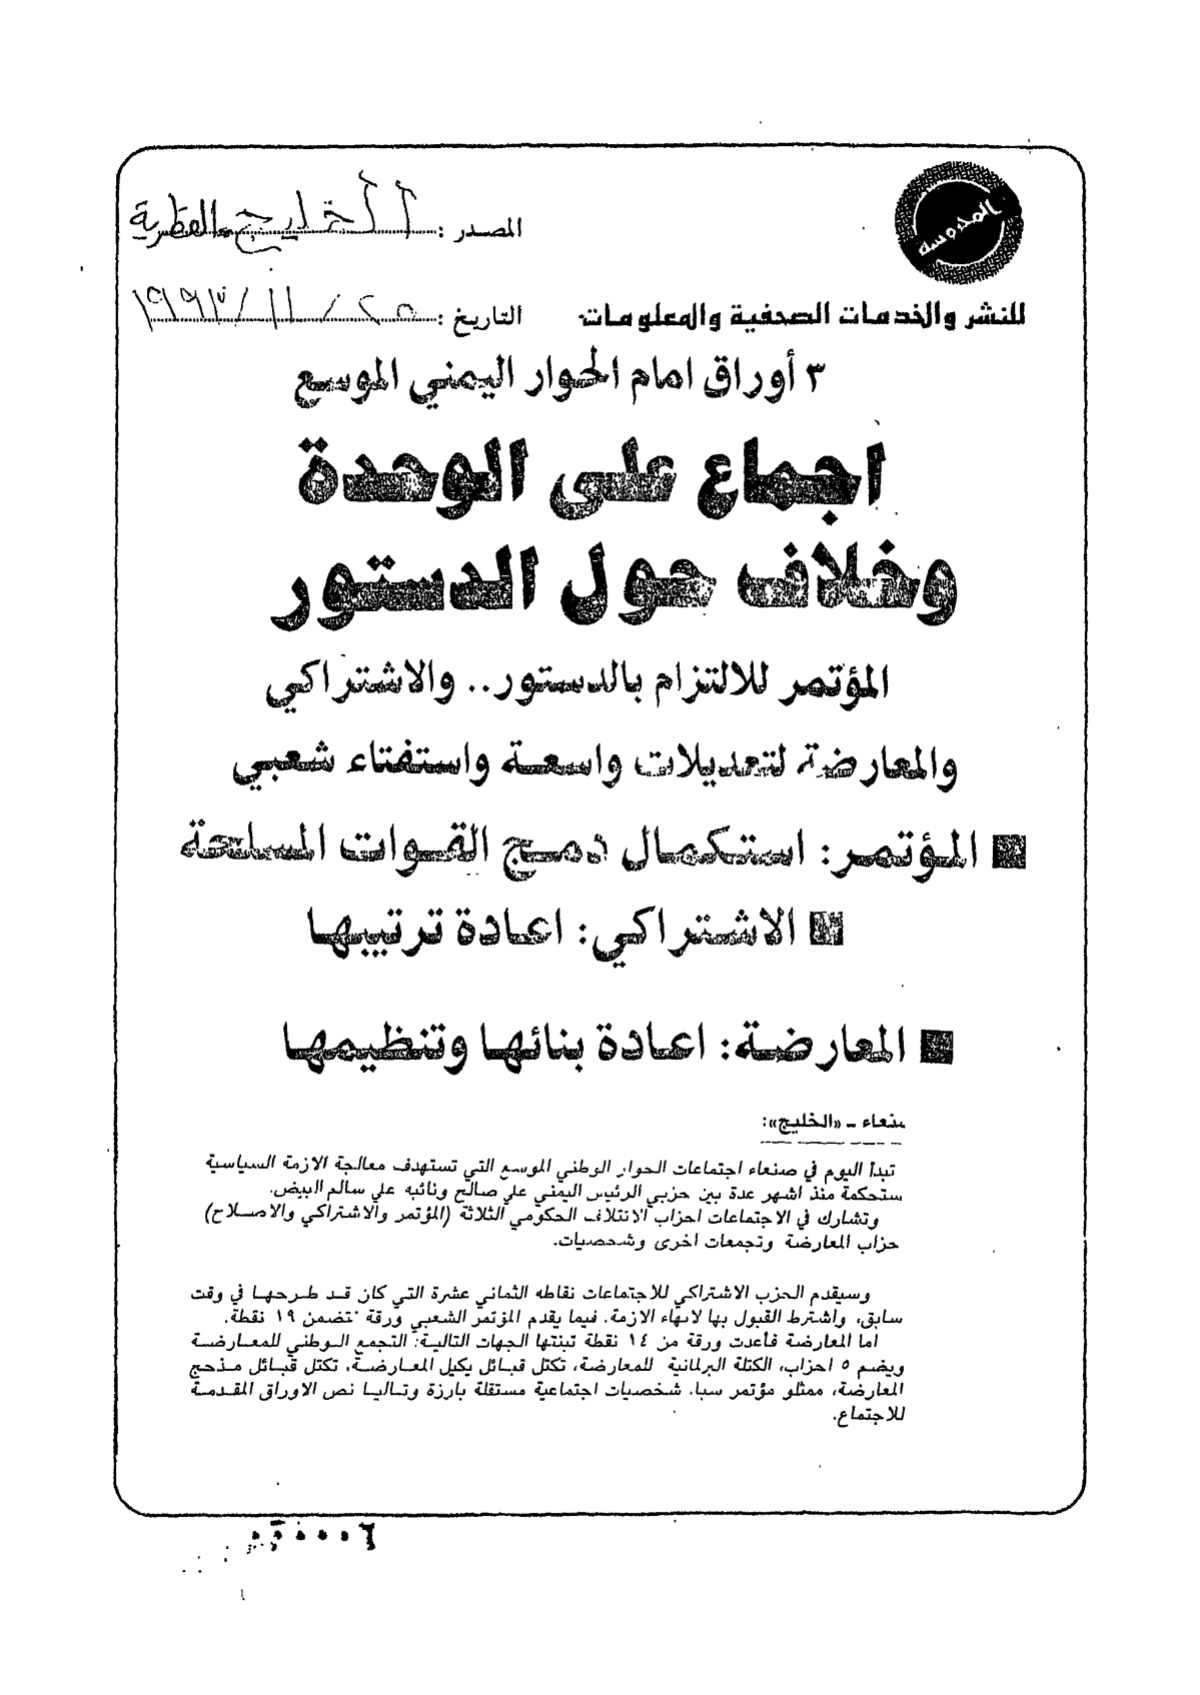 المحروسة
للنشر والخدمات الصحفية والمعلومات
المصدر : الخليج القطرية
التاريخ : ٢٥ / ١١ / ١٩٩٣
٣ أوراق امام الحوار اليمني الموسع
اجماع على الوحدة
وخلاف حول الدستور
المؤتمر للالتزام بالدستور.. والاشتراكي
والمعارضة لتعديلات واسعة واستفتاء شعبي
■ المؤتمر: استكمال دمج القوات المسلحة
■ الاشتراكي: اعادة ترتيبها
■ المعارضة: اعادة بنائها وتنظيمها
صنعاء ـ «الخليج»:
تبدأ اليوم في صنعاء اجتماعات الحوار الوطني الموسع التي تستهدف معالجة الازمة السياسية
ستحكمة منذ اشهر عدة بين حزبي الرئيس اليمني علي صالح ونائبه علي سالم البيض.
وتشارك في الاجتماعات احزاب الائتلاف الحكومي الثلاثة (المؤتمر والاشتراكي والاصلاح)
حزاب المعارضة وتجمعات اخرى وشخصيات.
وسيقدم الحزب الاشتراكي للاجتماعات نقاطه الثماني عشرة التي كان قد طرحها في وقت
سابق، واشترط القبول بها لانهاء الازمة. فيما يقدم المؤتمر الشعبي ورقة تتضمن ١٩ نقطة.
اما المعارضة فأعدت ورقة من ١٤ نقطة تبنتها الجهات التالية: التجمع الوطني للمعارضة
ويضم ٥ احزاب، الكتلة البرلمانية للمعارضة، تكتل قبائل بكيل المعارضة، تكتل قبائل مذحج
المعارضة، ممثلو مؤتمر سبا. شخصيات اجتماعية مستقلة بارزة وتاليا نص الاوراق المقدمة
للاجتماع.